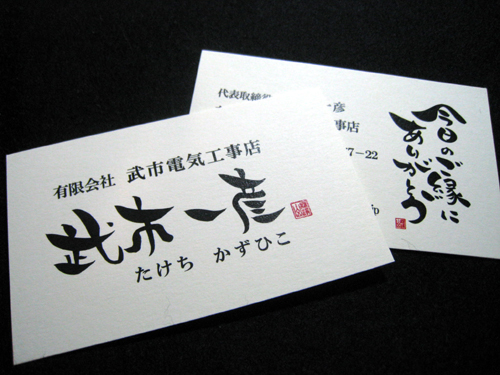 有限会社 武市電気工事店
武市一彦
たけち かずひこ
代表取締役
一彦
事店
7-22
jp
今日のご縁に
ありがとう